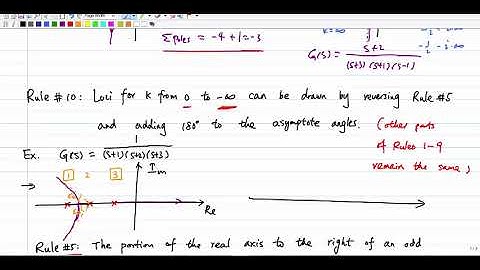 Page Width
Σ poles = -4 + 1 = -3
K=∞
G(s) = s+2
(s+3)(s+1)(s-1)
Rule #10: Loci for K from 0 to -∞ can be drawn by reversing Rule #5
and adding 180° to the asymptote angles. (other parts
of Rules 1-9
remain the same)
Ex. G(s) = 1
(s+1)(s+2)(s+3)
1 2 3 Im
Re
Rule #5: The portion of the real axis to the right of an odd